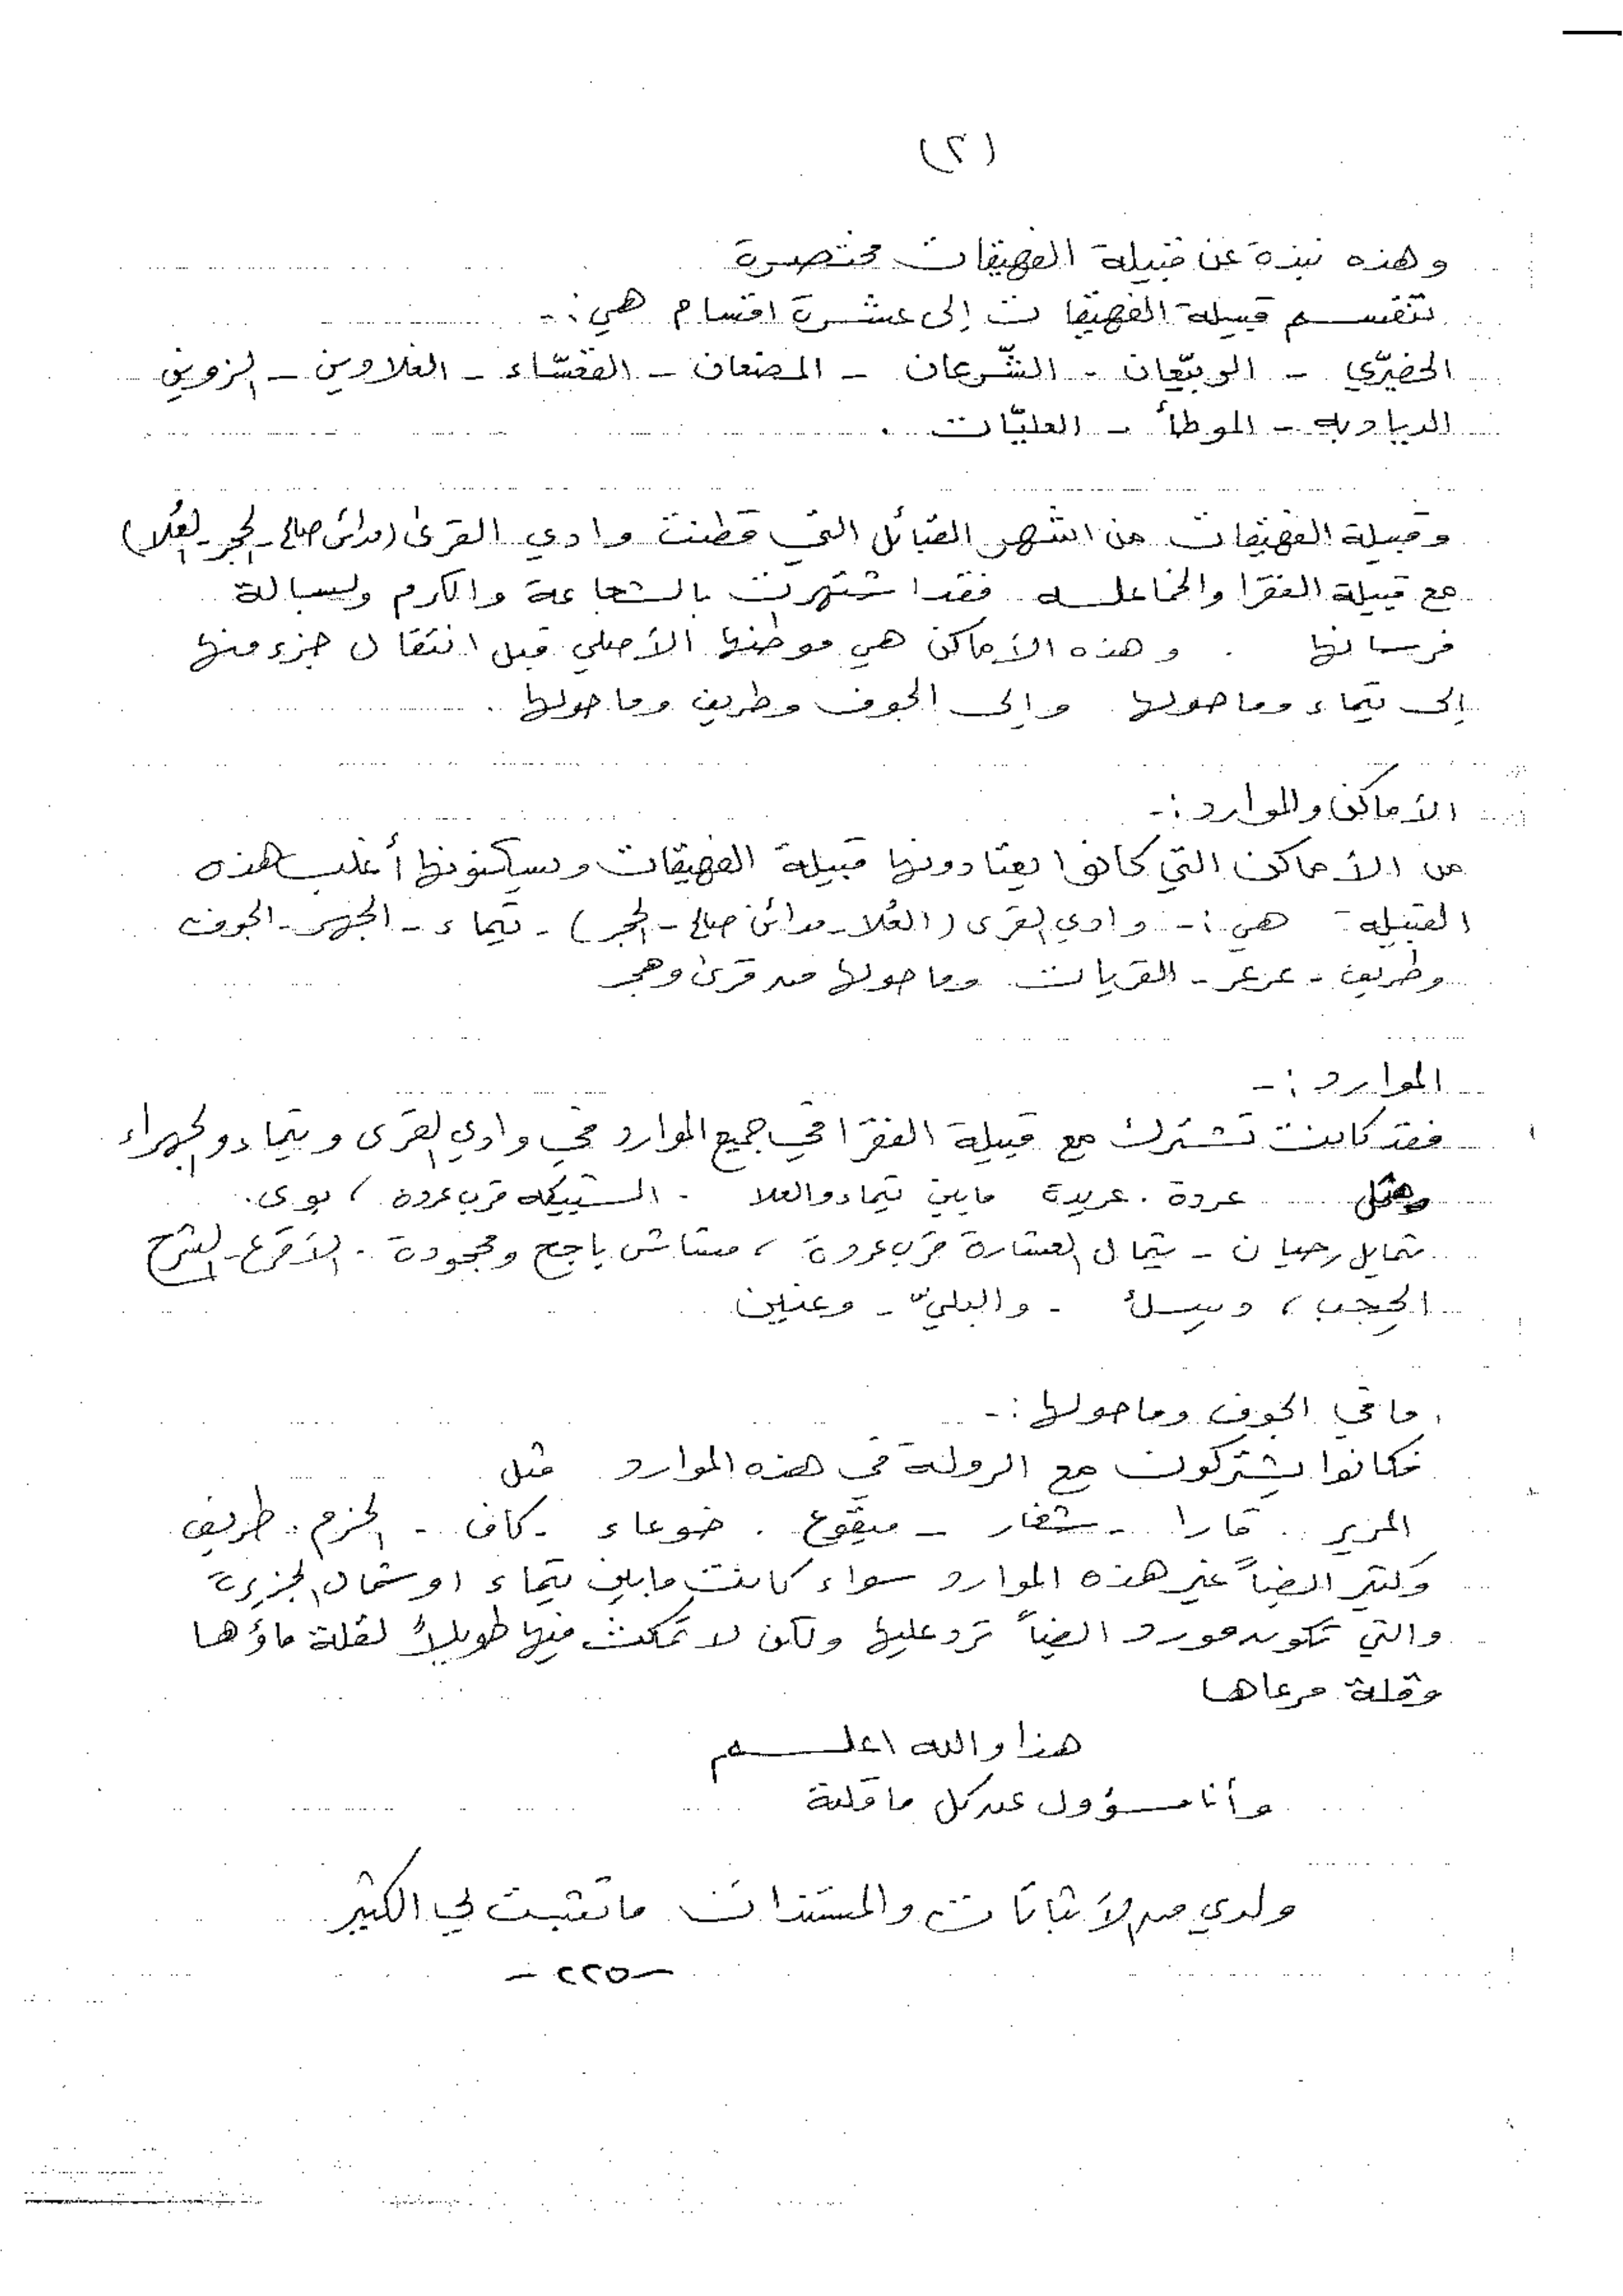 (٢)
وهذه نبذة عن قبيلة الفهيقات مختصرة
تنقسم قبيلة الفهيقات إلى عشرة اقسام هي :-
الخضيري - الربيّعان - الشّرعان - المضعان - القعسّاء - العلاوين - الزوين
الديادبه - الموطأ - العليّات .
وقبيلة الفهيقات من اشهر القبائل التي قطنت وادي القرى (مدائن صالح - الحجر - العُلا)
مع قبيلة الفقرا والخماعله فقد اشتهرت بالشجاعة والكرم وبسالة
فرسانها . وهذه الأماكن هي موطنها الأصلي قبل انتقال جزء منها
إلى تيماء وماحولها وإلى الجوف وطريف وماحولها .
الأماكن والموارد :-
من الأماكن التي كانوا يعتادونها قبيلة الفهيقات ويسكنونها أغلب هذه
القبيلة هي :- وادي القرى (العُلا - مدائن صالح - الحجر) - تيماء - الجهر - الجوف
وطريف - عرعر - القريات وماحولها من قرى وهجر
الموارد :-
فقد كانت تشترك مع قبيلة الفقرا في جميع الموارد في وادي القرى وتيماء والجهراء
ومثل عردة . عريدة مابين تيماء والعلا - الستيكه قرب عردة ، بوى .
ثمايل رحيان - ثمال العشارة قرب عردة ، مشاش ياجج ومجودة - الأقرع - الشرح
الحجب ، - والبليّ - وعنين
اما في الجوف وماحولها :-
فكانوا يشتركون مع الرولة في هذه الموارد مثل
المرير . قارا - شغار - ميقوع . ضوعاء - كاف - الحزم - طريف
وكثير ايضاً غير هذه الموارد سواء كانت مابين تيماء او شمال الجزيرة
والتي تكون مورد ايضاً ترد عليها ولكن لا تمكث فيها طويلاً لقلة ماؤها
وقلة مرعاها
هذا والله اعلم
وأنا مسؤول عن كل ماقلته
ولدي من الأثباتات والمستندات ماتثبت لي الكثير
- ٢٢٥ -